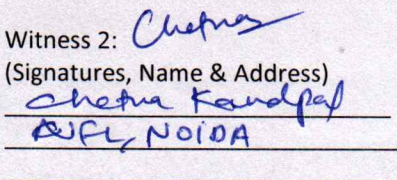 Witness 2: Chetna
(Signatures, Name & Address)
Chetna Kandpal
NOIDA